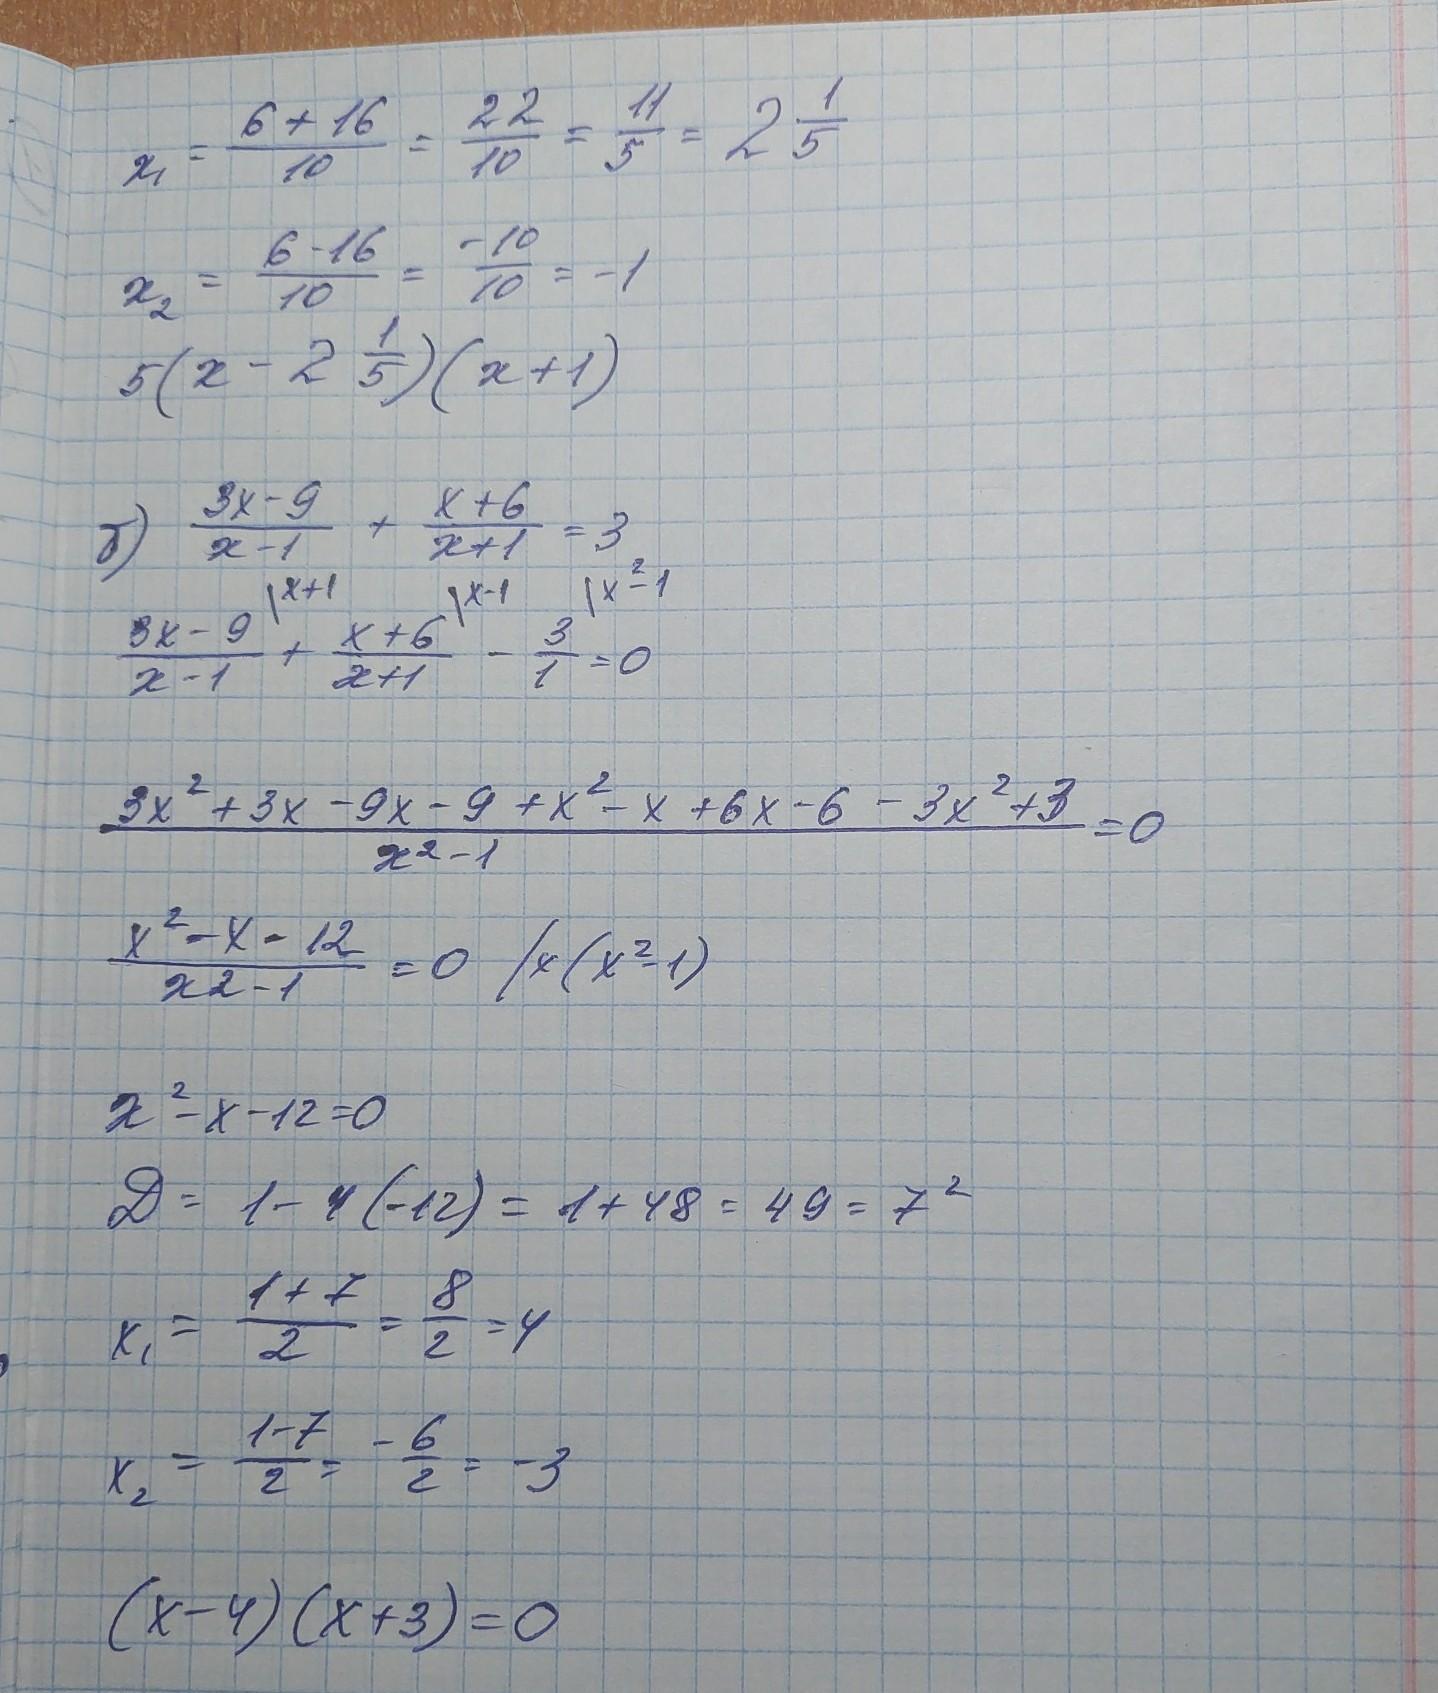 x₁ = (6+16)/10 = 22/10 = 11/5 = 2 1/5
x₂ = (6-16)/10 = -10/10 = -1
5(x - 2 1/5)(x+1)
б) (3x-9)/(x-1) + (x+6)/(x+1) = 3
(3x-9)/(x-1) \x+1 + (x+6)/(x+1) \x-1 - 3/1 \x²-1 = 0
(3x²+3x-9x-9+x²-x+6x-6-3x²+3)/(x²-1) = 0
(x²-x-12)/(x2-1) = 0 /x(x²-1)
x²-x-12=0
D = 1-4(-12) = 1+48 = 49 = 7²
x₁ = (1+7)/2 = 8/2 = 4
x₂ = (1-7)/2 = -6/2 = -3
(x-4)(x+3)=0